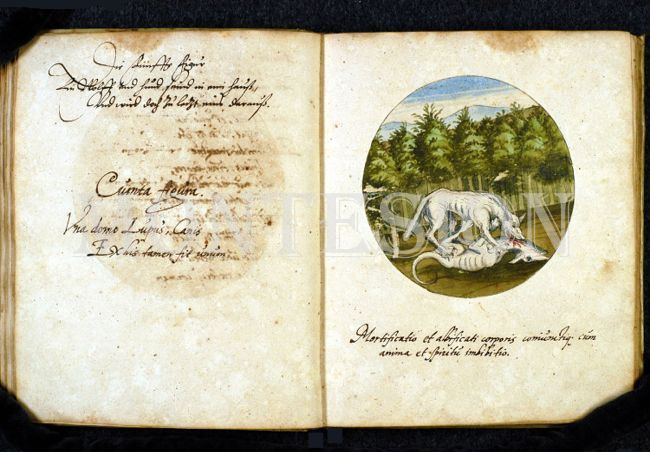 Die Fünffte Figur
Ein Wolff und hund, seind in eim hauß,
Und wird doch zu letzt eins darauß.
Cuinta figura.
Vna domo Lupus, Canis
Ex his tamen fit unum
Mortificatio et albificati corporis coniunctiq: cum
anima et spiritu imbibitio.